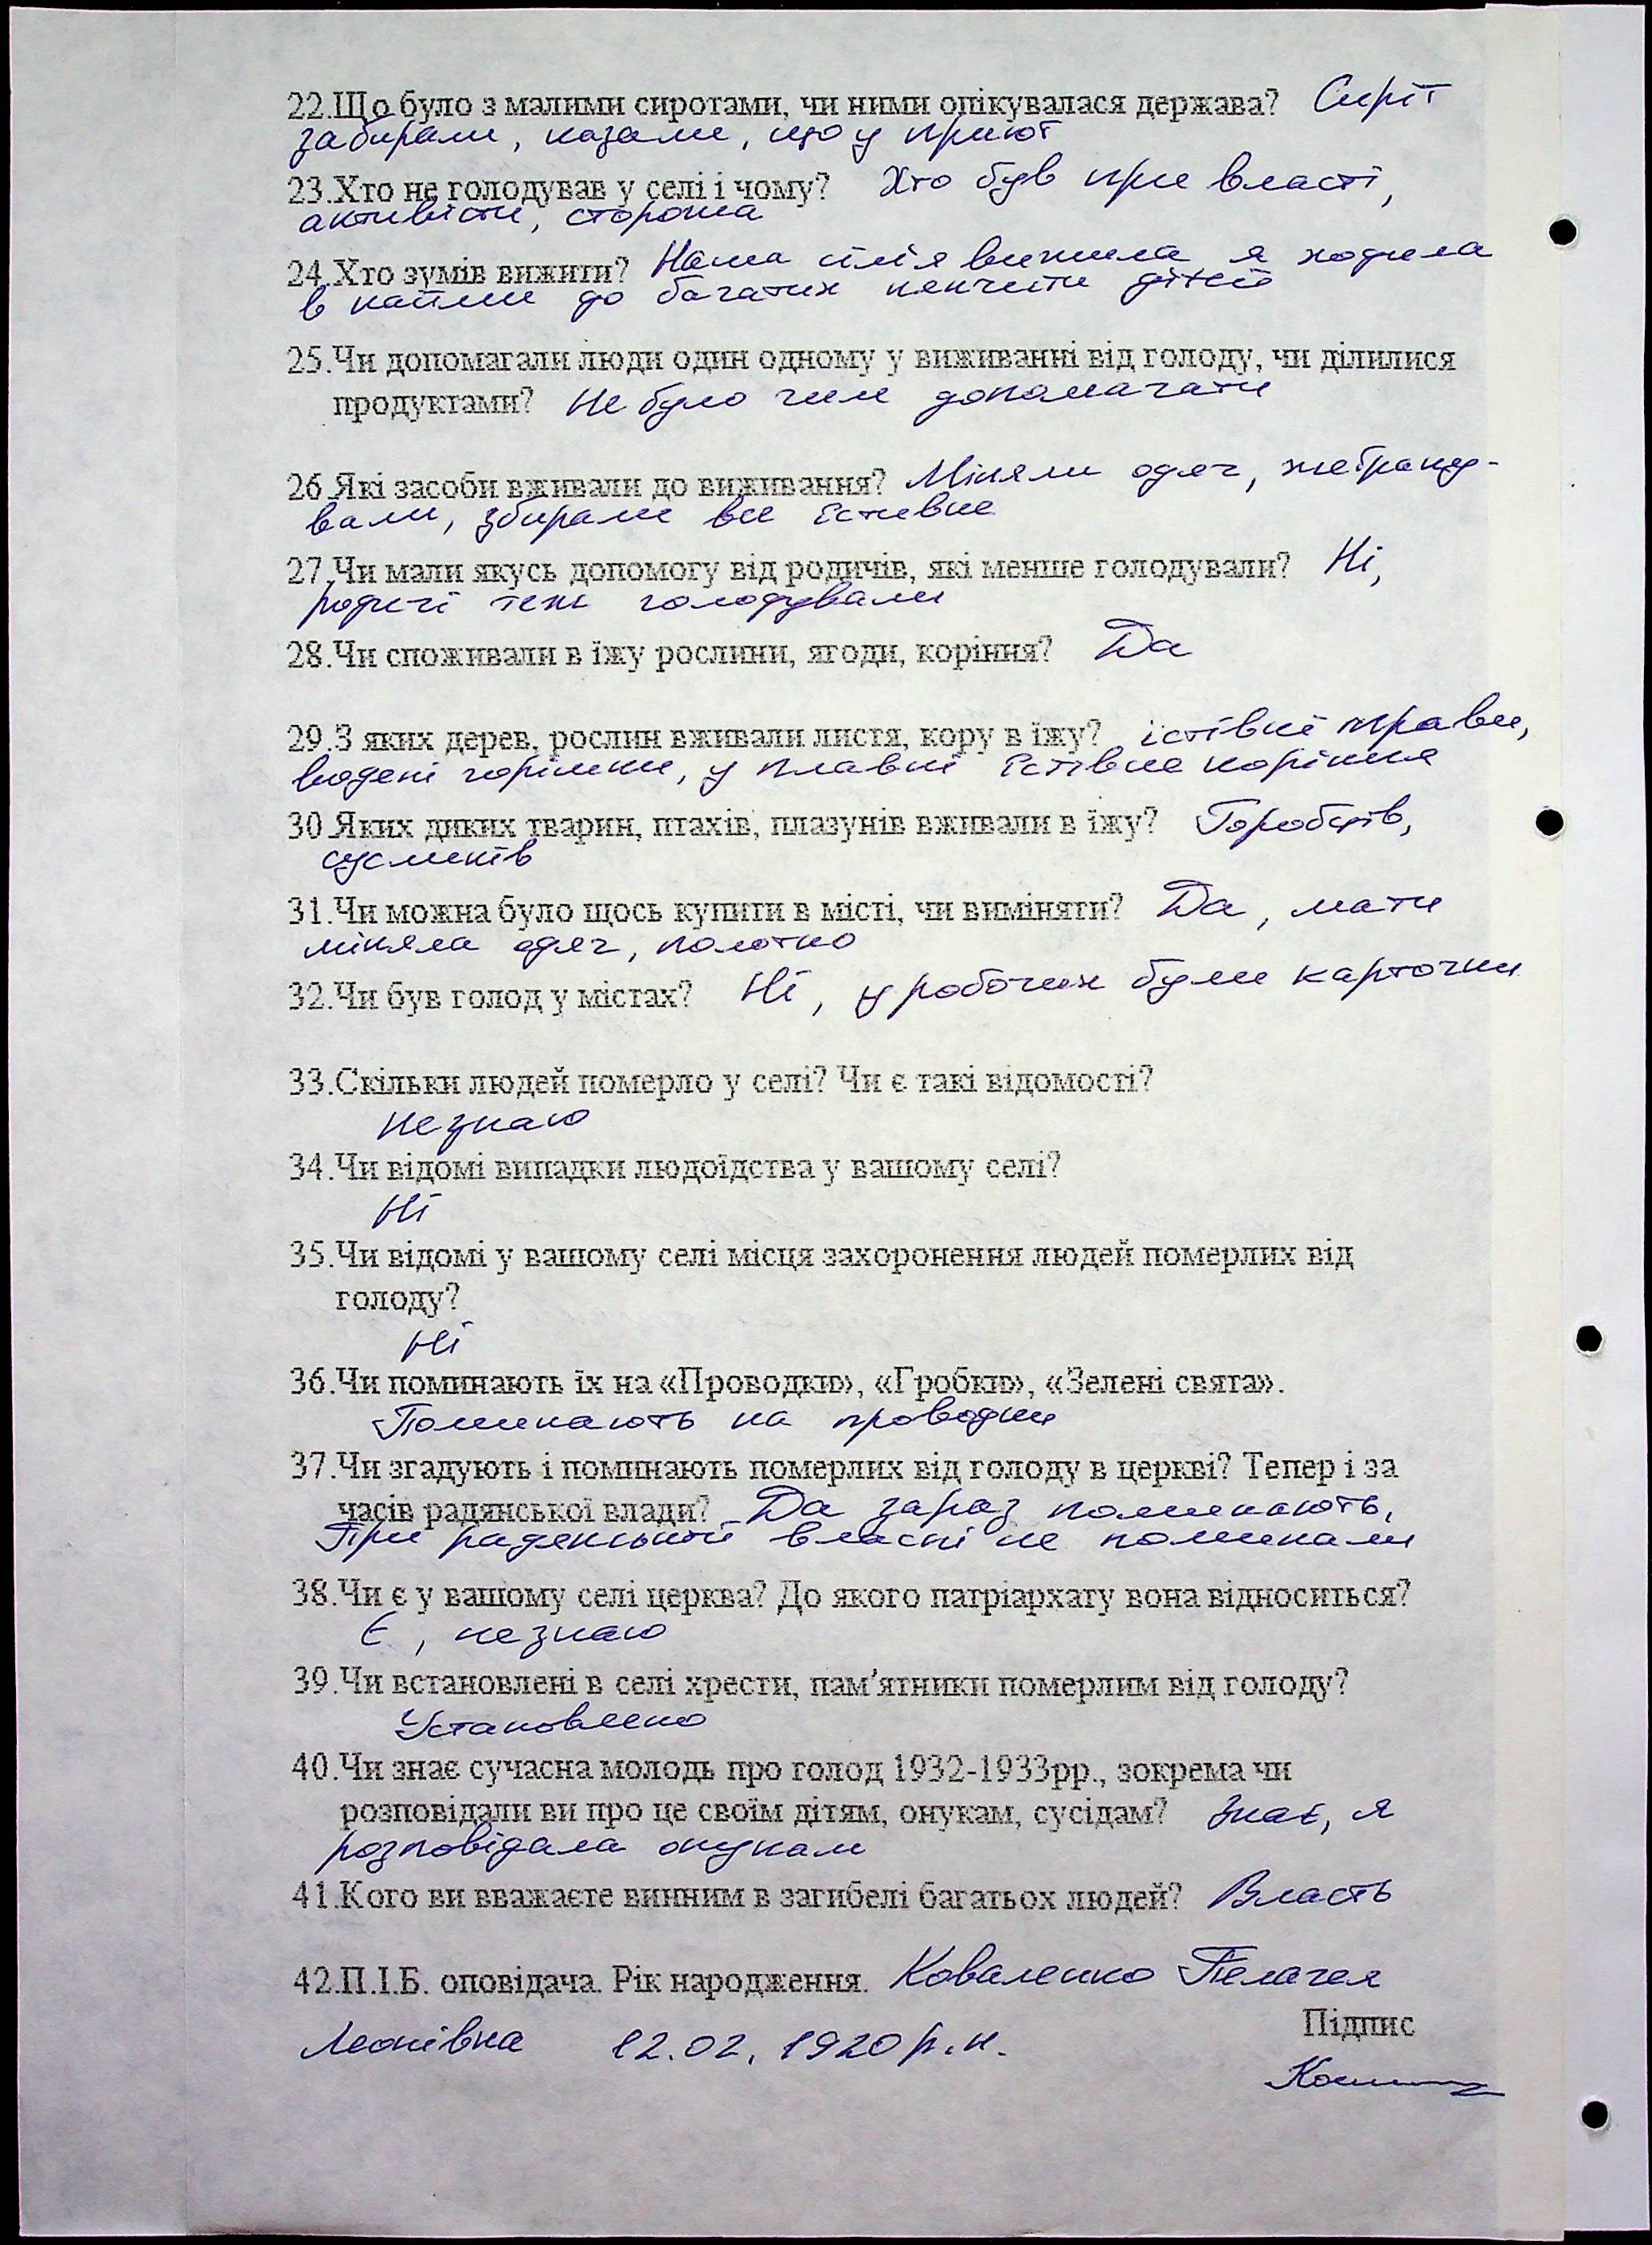 22.Що було з малими сиротами, чи ними опікувалася держава? Сиріт
забирали, казали, що у приют
23.Хто не голодував у селі і чому? Хто був при власті,
активісти, сторожа
24.Хто зумів вижити? Наша сімія вижила я ходила
в найми до багатих нянчити дітей
25.Чи допомагали люди один одному у виживанні від голоду, чи ділилися
продуктами? Не було чим допомагати
26.Які засоби вживали до виживання? Міняли одяг, жебраку-
вали, збирали все їстивне
27.Чи мали якусь допомогу від родичів, які менше голодували? Ні,
родичі теж голодували
28.Чи споживали в їжу рослини, ягоди, коріння? Да
29.З яких дерев, рослин вживали листя, кору в їжу? їстівні трави,
водені горішки, у плавні їстівне коріння
30.Яких диких тварин, птахів, плазунів вживали в їжу? Горобців,
сусликів
31.Чи можна було щось купити в місті, чи виміняти? Да, мати
міняла одяг, полотно
32.Чи був голод у містах? Ні, у робочих були карточки
33.Скільки людей померло у селі? Чи є такі відомості?
незнаю
34.Чи відомі випадки людоїдства у вашому селі?
Ні
35.Чи відомі у вашому селі місця захоронення людей померлих від
голоду?
Ні
36.Чи поминають їх на «Проводків», «Гробків», «Зелені свята».
Поминають на проводки
37.Чи згадують і поминають померлих від голоду в церкві? Тепер і за
часів радянської влади? Да зараз поминають,
При радянській власті не поминали
38.Чи є у вашому селі церква? До якого патріархату вона відноситься?
Є, незнаю
39.Чи встановлені в селі хрести, пам’ятники померлим від голоду?
Установлено
40.Чи знає сучасна молодь про голод 1932-1933рр., зокрема чи
розповідали ви про це своїм дітям, онукам, сусідам? Знає, я
розповідала онукам
41.Кого ви вважаєте винним в загибелі багатьох людей? Власть
42.П.І.Б. оповідача. Рік народження. Коваленко Пелагея
Підпис
Леонівна 12.02.1920 р.н.